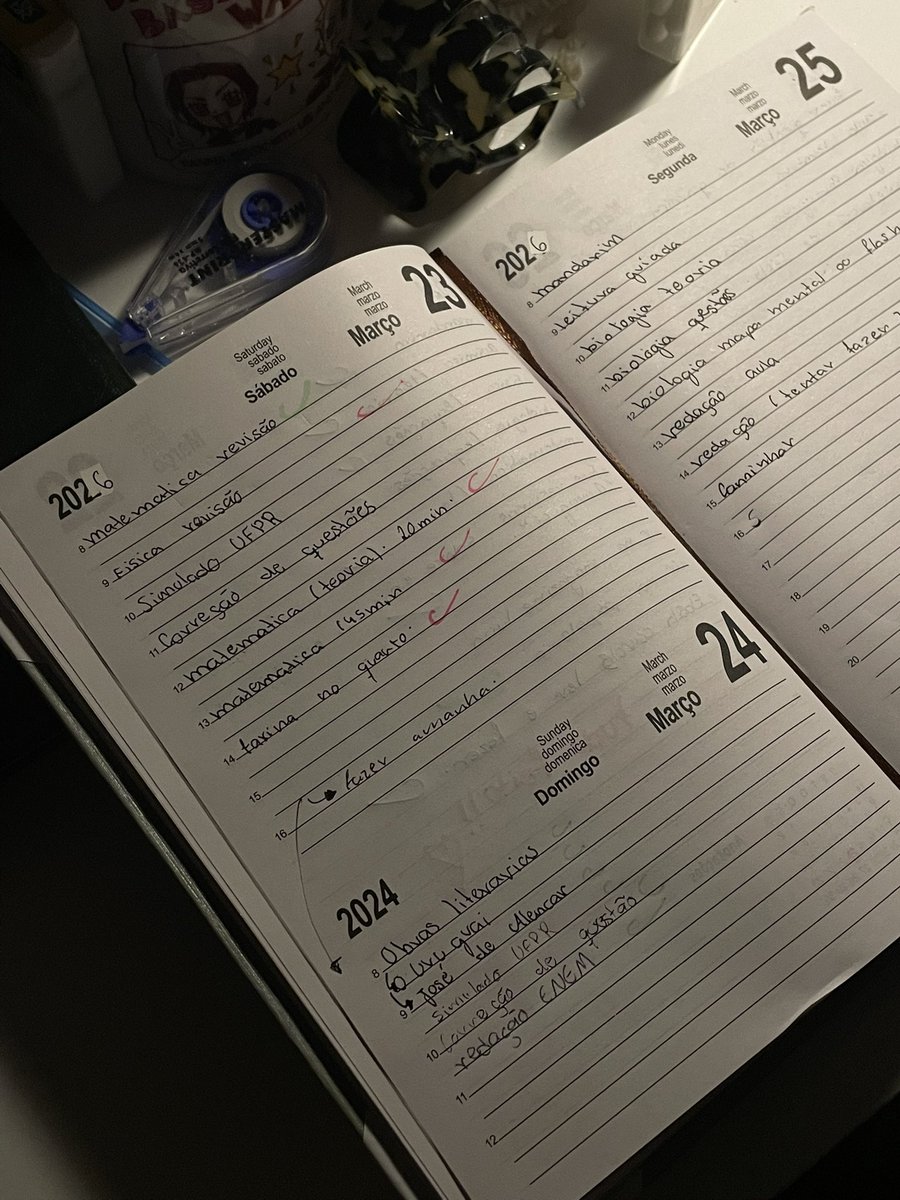 23
March
marzo
marzo
Março
Saturday
sabado
sabato
Sábado
2026
8 matematica revisão
9 Fisica revisão
10 Simulado UFPR
11 Correção de questões
12 matematica (teoria). 20min.
13 matematica (45min
14 faxina no quarto.
15
fazer amanha.
16
24
March
marzo
marzo
Março
Sunday
domingo
domenica
Domingo
2024
8 Obras literarias
O Uruguai
9 José de Alencar
Simulado UFPR
10 Correção de questão
redação ENEM
11
12
25
March
marzo
marzo
Março
Monday
lunes
lunedi
Segunda
2026
8 mandarim
9 leitura guiada
10 biologia teoria
11 biologia questões
12 biologia mapa mental
13 redação aula
14 redação (tentar fazer
15 Caminhar
16 S
17
18
19
20